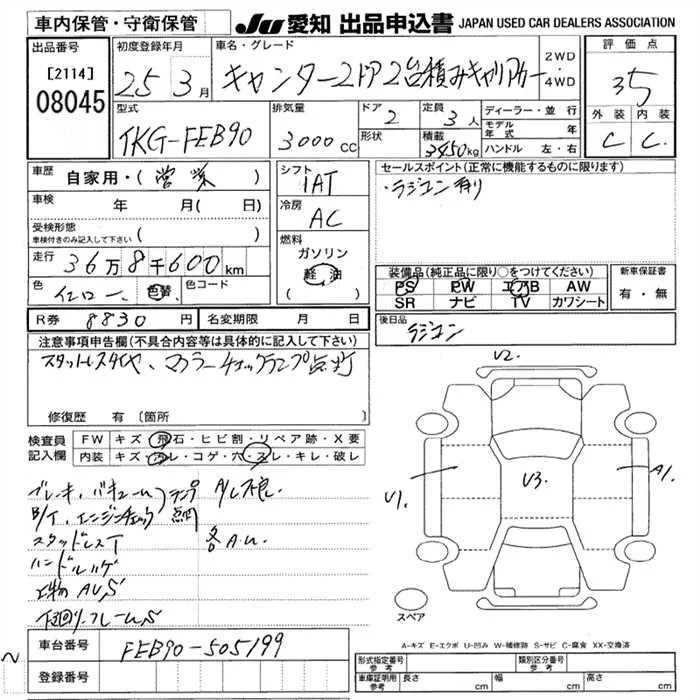 車内保管・守衛保管
JU 愛知 出品申込書 JAPAN USED CAR DEALERS ASSOCIATION
出品番号
[2114]
08045
初度登録年月
25 3月
車名・グレード
キャンター2ドア2台積みキャリアカー
2WD
4WD
評価点
35
外装 内装
C C
型式
TKG-FEB90
排気量
3000cc
ドア
2
形状
定員
3人
積載
3450kg
ディーラー・並行
モデル年式 年
ハンドル 左・右
車歴 自家用・(営業)
車検 年 月( 日)
受検形態
車検付きのみ記入して下さい ( )
走行 36万8千600km
色 イエロー 色替 色コード
シフト
1AT
冷房
AC
燃料
ガソリン
軽油
セールスポイント(正常に機能するものに限ります)
・ラジコン有り
装備品(純正品に限り○をつけてください)
PS PW エアB AW
SR ナビ TV カワシート
新車保証書
有・無
R券 8830円 名変期限 月 日
後日品
ラジコン
注意事項申告欄(不具合内容等は具体的に記入して下さい)
スタットレスタイヤ、マフラーチェックランプ点灯
修復歴 有 [箇所
検査員記入欄
FW キズ・飛石・ヒビ割・リペア跡・X要
内装 キズ・汚レ・コゲ・穴・スレ・キレ・破レ
ブレーキ、バキューム
B/T、エンジンチェック
ランプ点灯
A/L不良
スタッドレスT
各A.U.
ハンドルハゲ
上物AUS
下回り・フレームS
V2.
V1.
V3.
A1.
スペア
車台番号 FEB90-505199
登録番号
A-キズ E-エクボ U-凹み W-補修跡 S-サビ C-腐食 XX-交換済
形式指定番号
参考
類別区分番号
参考
車庫証明用
参考
長さ cm 幅 cm 高さ cm